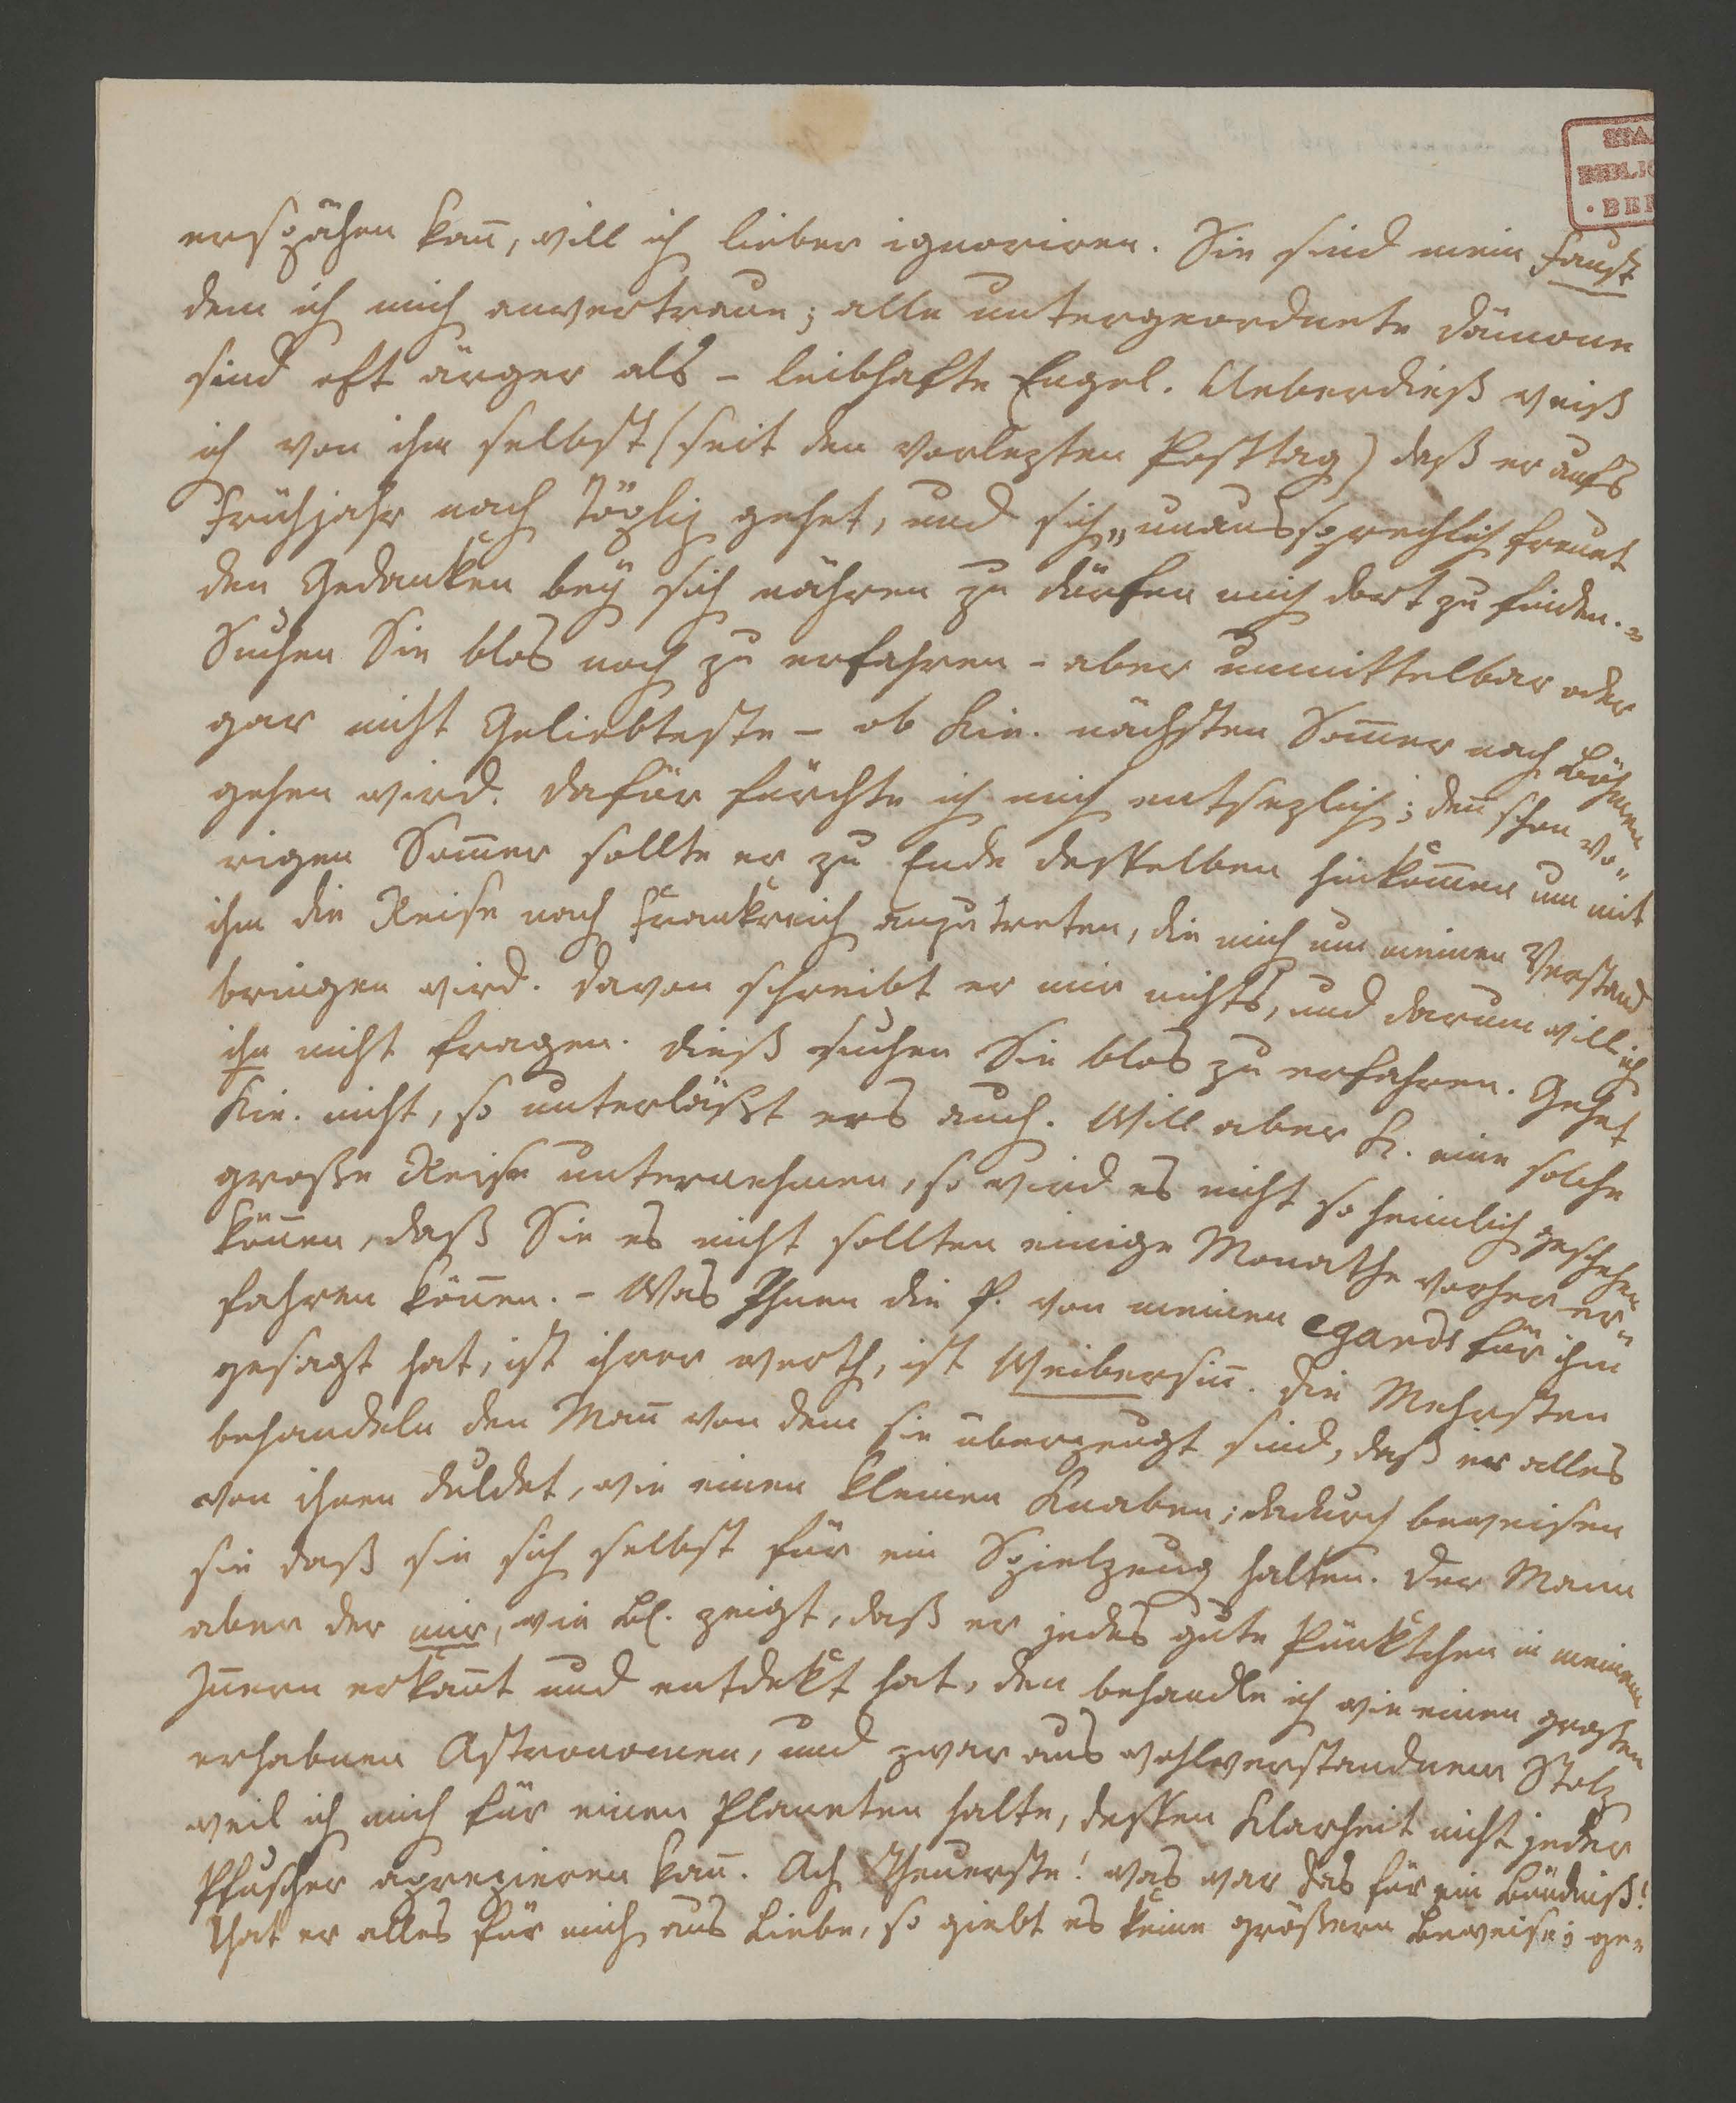 STA
BIBLIO
· BER
erspähen kan̄, will ich lieber ignoriren. Sie sind mein Faust
dem ich mich anvertraue; alle untergeordnete Dämone
sind oft ärger als – leibhafte Engel. Ueberdieß weiß
ich von ihm selbst (seit den vorlezten Posttag) daß er aufs
Frühjahr nach Töpliz gehet, und sich „unaussprechlich freuet
den Gedanken bey sich nähren zu dürfen mich dort zu finden.„
Suchen Sie blos noch zu erfahren – aber unmittelbar oder
gar nicht Geliebteste – ob Kie. nächsten Som̄er nach Böhmen
gehen wird. Dafür fürchte ich mich entsezlich; den̄ schon vo⸗
rigen Som̄er sollte er zu Ende desselben hinkom̄en um mit
ihm die Reise nach Frankreich anzutreten, die mich um meinen Verstand
bringen wird. Davon schreibt er mir nichts, und darum will ich
ihn nicht fragen. Dieß suchen Sie blos zu erfahren. Gehet
Kie. nicht, so unterläßt ers auch. Will aber K. eine solche
große Reise unternehmen, so wird es nicht so heimlich geschehen
kön̄en, daß Sie es nicht sollten einige Monathe vorher er⸗
fahren kön̄en. – Was Ihnen die P. von meinen egards für ihm
gesagt hat, ist ihrer werth, ist Weibersin̄. Die Mehrsten
behandeln den Man̄ von dem sie überzeugt sind, daß er alles
von ihnen duldet, wie einen kleinen Knaben; dadurch beweisen
sie daß sie sich selbst für ein Spielzeug halten. Der Mann
aber der mir, wie Bl. zeigt, daß er jedes gute Pünktchen in meinem
In̄ern erkan̄t und entdekt hat, den behandle ich wie einen großen
erhabnen Astronomen, und zwar aus wohlverstandnem Stolz
weil ich mich für einen Planeten halte, dessen Klarheit nicht jeder
Pfuscher aprezieren kan̄. Ach Theuerste! was war das für ein Bündniß!
That er alles für mich aus Liebe, so giebt es keine größern Beweise; ge⸗